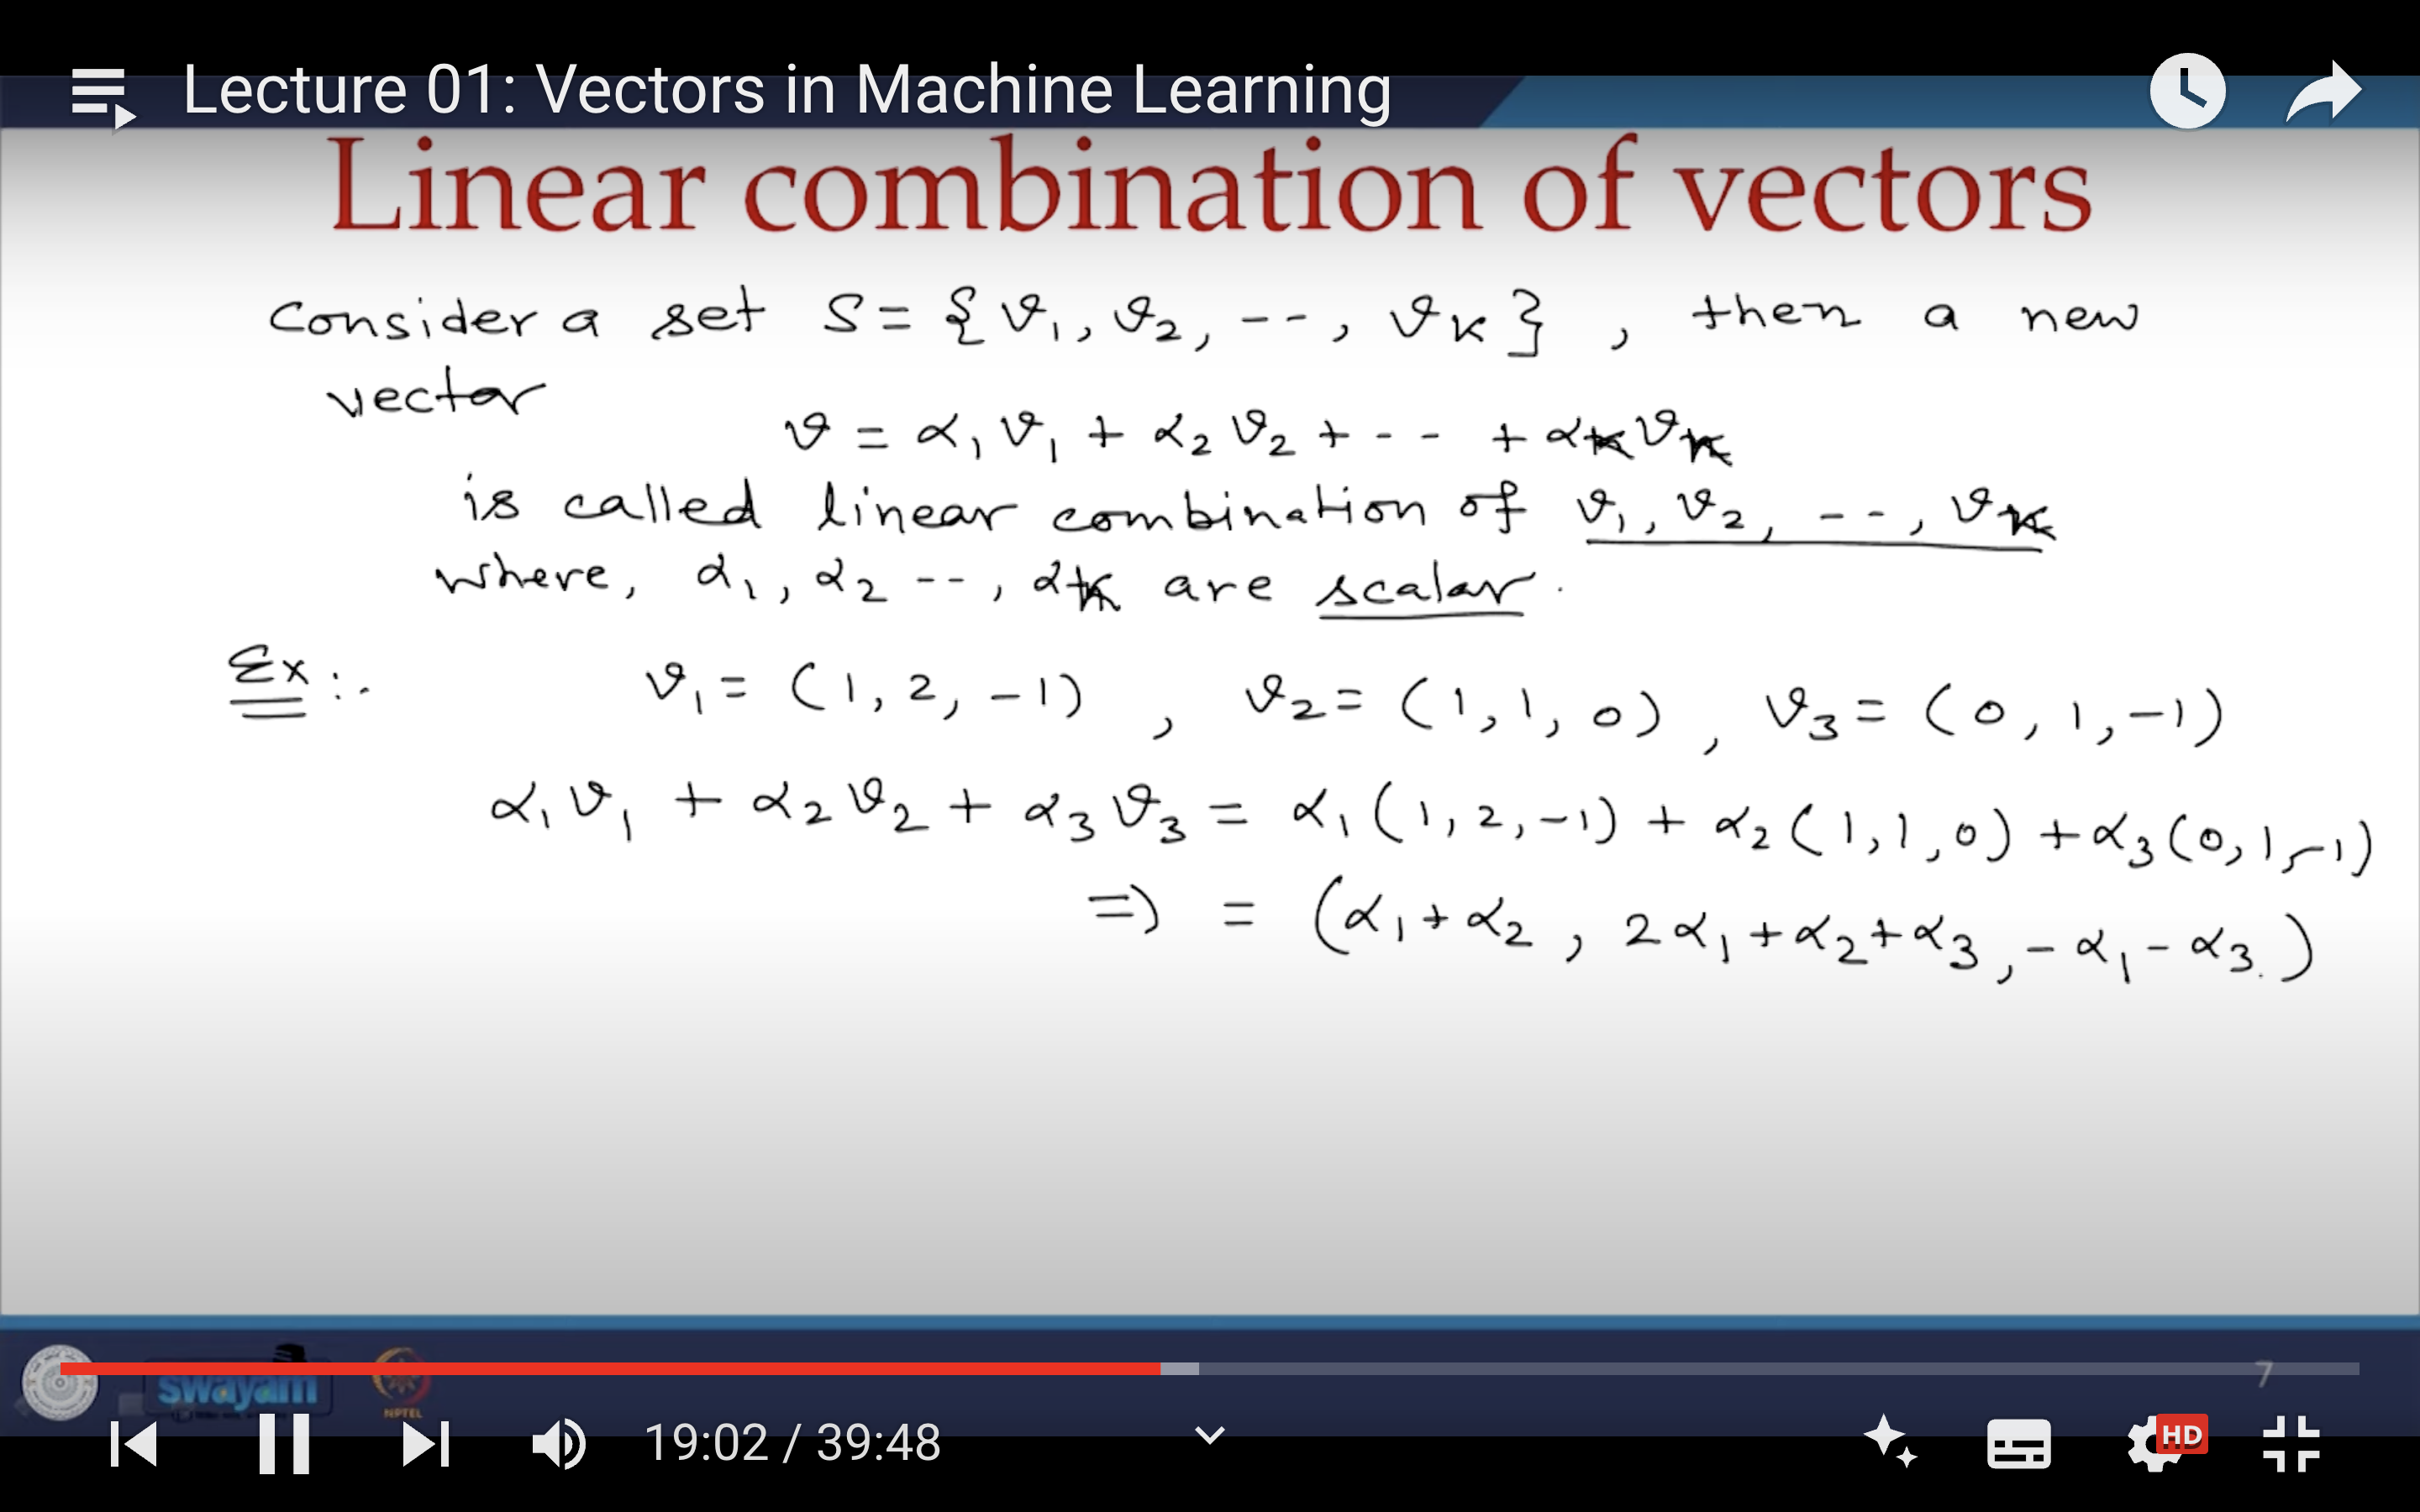 Lecture 01: Vectors in Machine Learning
Linear combination of vectors
Consider a set S = {v₁, v₂, --, vₖ}, then a new
vector
v = α₁v₁ + α₂v₂ + --- + αₖvₖ
is called linear combination of v₁, v₂, --, vₖ
where, α₁, α₂ --, αₖ are scalar.
Ex:-
v₁ = (1, 2, -1), v₂ = (1, 1, 0), v₃ = (0, 1, -1)
α₁v₁ + α₂v₂ + α₃v₃ = α₁(1, 2, -1) + α₂(1, 1, 0) + α₃(0, 1, -1)
⇒ = (α₁+α₂, 2α₁+α₂+α₃, -α₁-α₃.)
7
swayam
NPTEL
19:02 / 39:48
HD